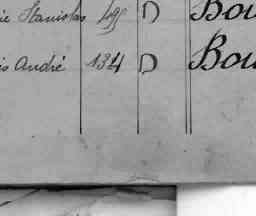 ie Stanislas D Bou
is André 134 D Bou